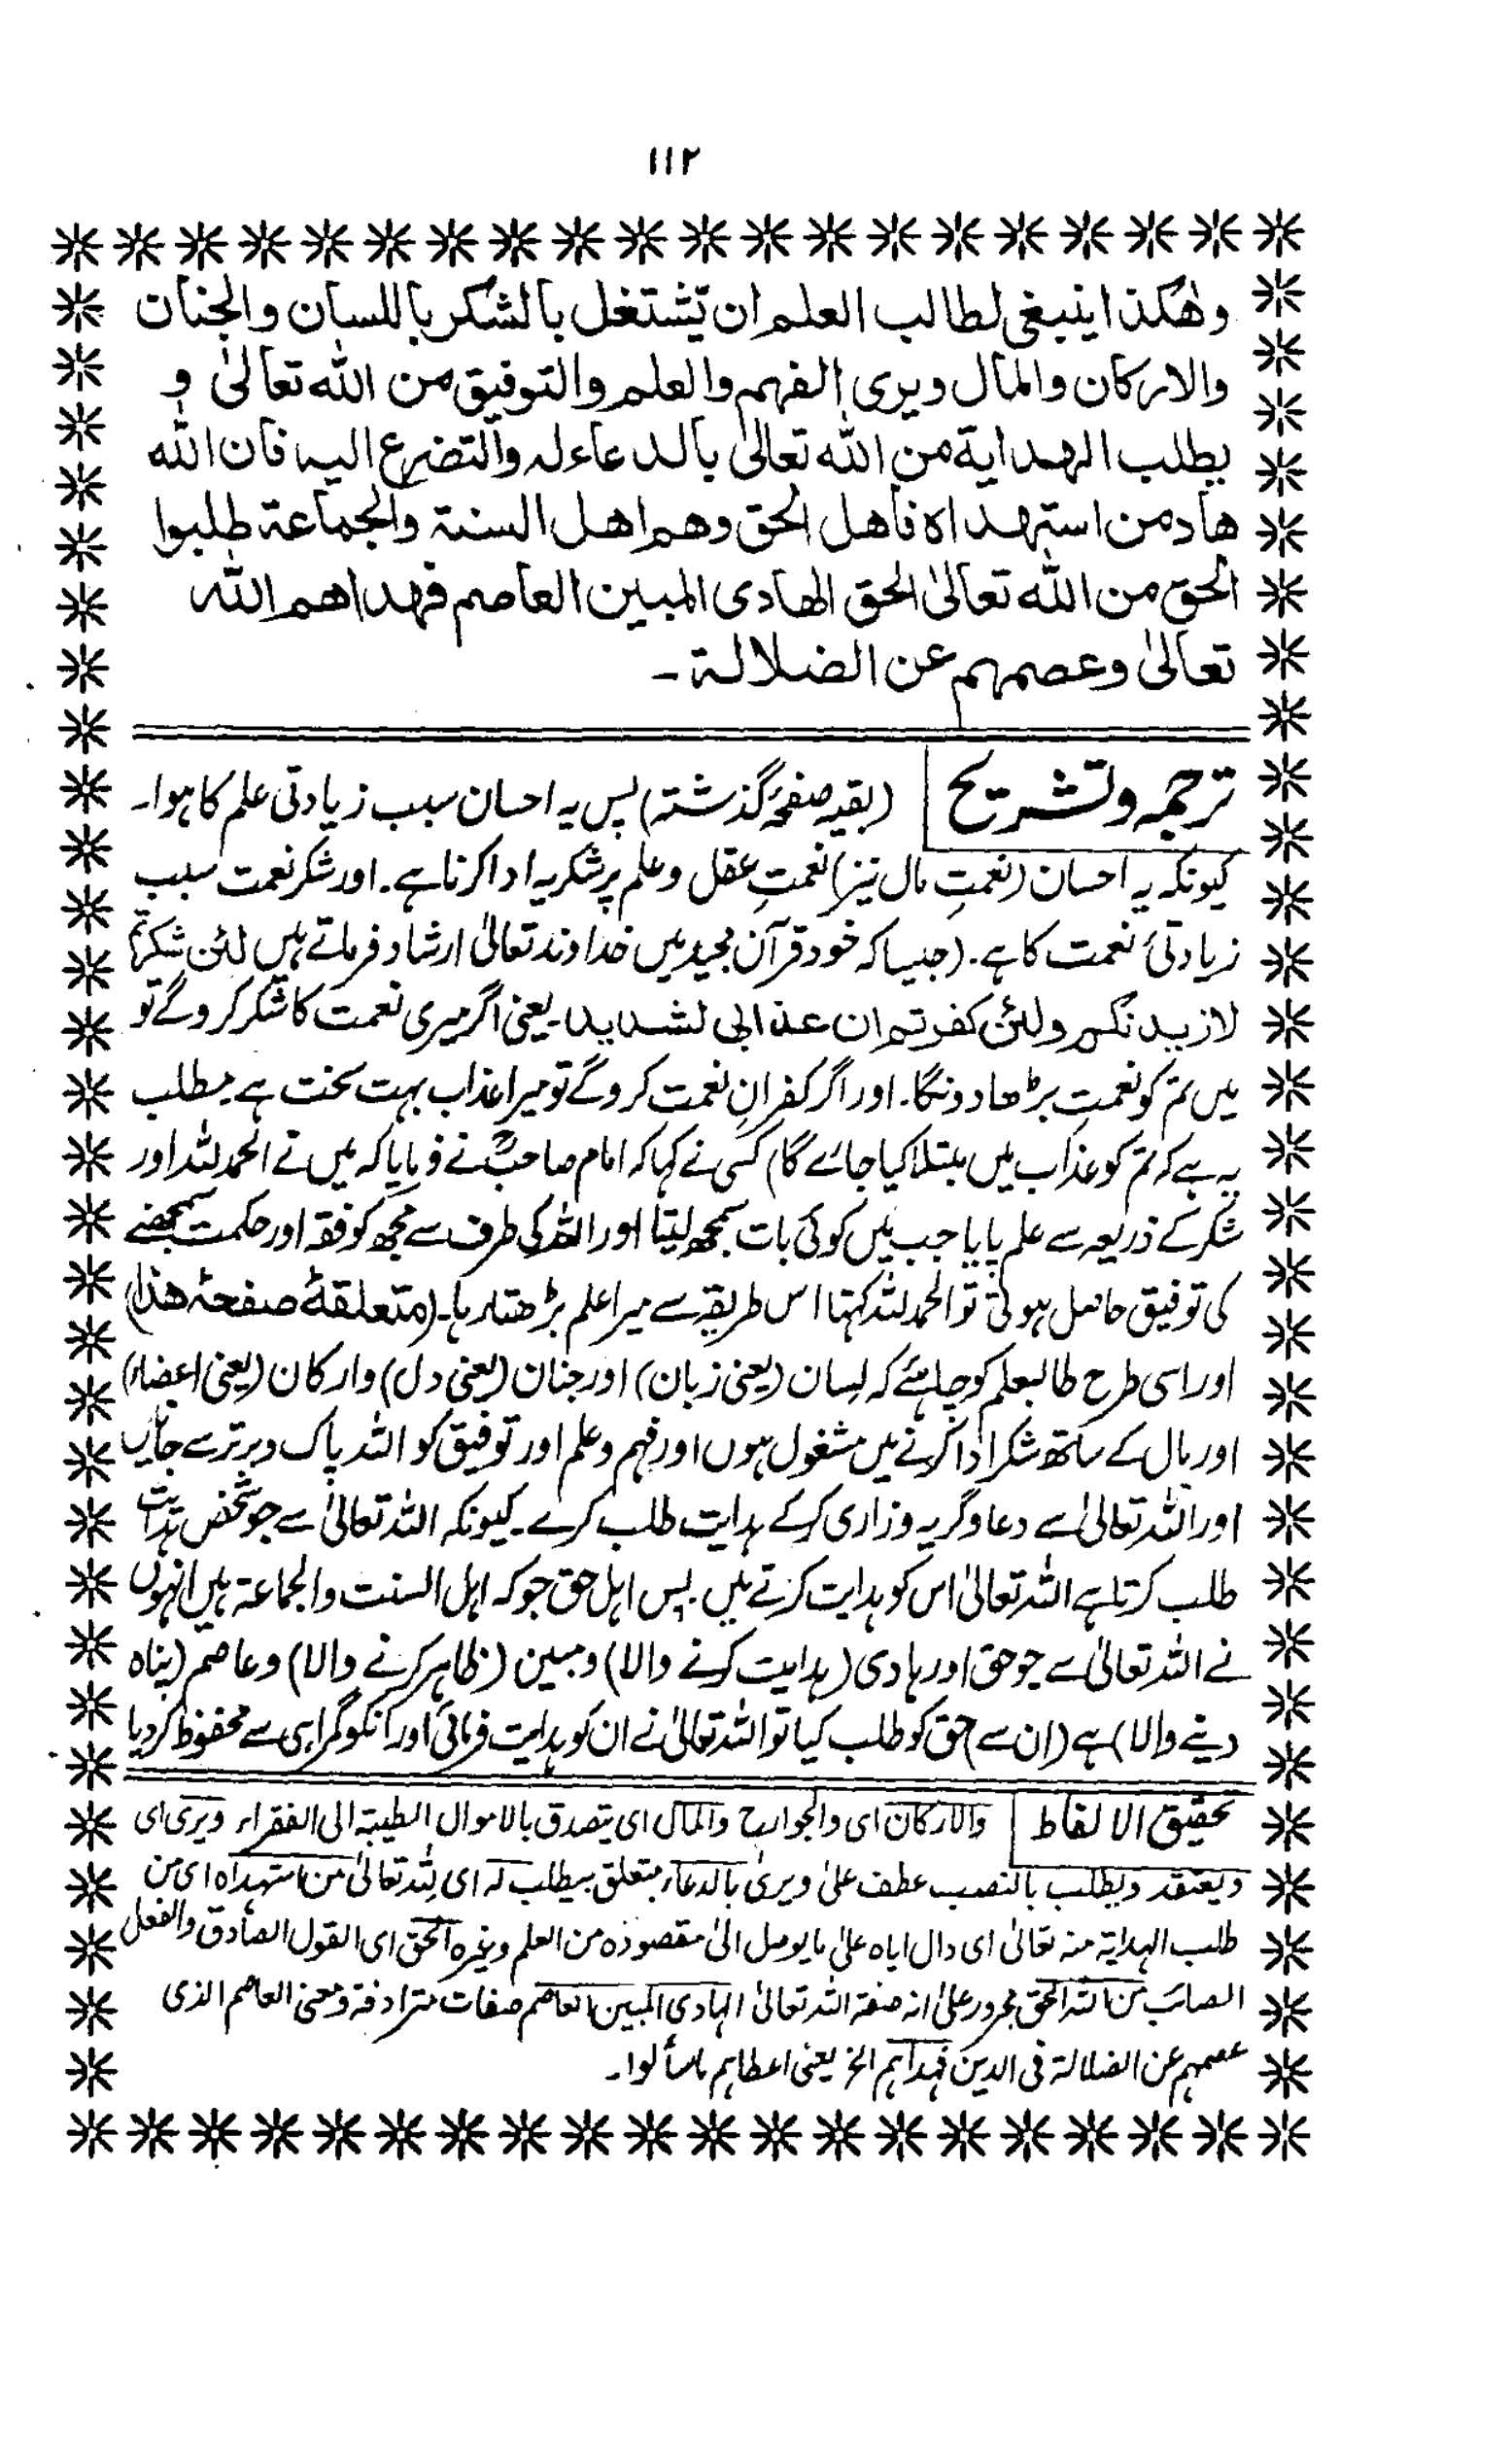 ۱۱۲
وهٰكذا ينبغى لطالب العلم ان يشتغل بالشكر باللسان والجنان
والاركان والمال ويرى الفهم والعلم والتوفيق من الله تعالىٰ و
يطلب الهداية من الله تعالىٰ بالدعاء له والتضرع اليه فان الله
هاد من استهداه فاهل الحق وهم اهل السنة والجماعة طلبوا
الحق من الله تعالىٰ الحق الهادى المبين العاصم فهداهم الله
تعالىٰ وعصمهم عن الضلالة ـ
ترجمہ وتشریح (بقیہ صفحۂ گذشتہ) پس یہ احسان سبب زیادتی علم کا ہوا۔
کیونکہ یہ احسان (نعمتِ مال نیز) نعمتِ عقل وعلم پر شکریہ ادا کرنا ہے۔ اور شکر نعمت سبب
زیادتیٔ نعمت کا ہے۔ (جیسا کہ خود قرآن مجید میں خداوند تعالیٰ ارشاد فرماتے ہیں لئن شکرتم
لازیدنکم ولئن کفرتم ان عذابی لشدید۔ یعنی اگر میری نعمت کا شکر کروگے تو
میں تم کو نعمت بڑھادونگا۔ اور اگر کفرانِ نعمت کروگے تو میرا عذاب بہت سخت ہے۔ مطلب
یہ ہے کہ تم کو عذاب میں مبتلا کیا جائے گا) کسی نے کہا کہ امام صاحبؒ نے فرمایا کہ میں نے الحمدللہ اور
شکر کے ذریعہ سے علم پایا جب میں کوئی بات سمجھ لیتا اور اللہ کی طرف سے مجھ کو فقہ اور حکمت سمجھنے
کی توفیق حاصل ہوتی تو الحمدللہ کہتا اس طریقہ سے میرا علم بڑھتا رہا۔ (متعلقۂ صفحۂ ھذا)
اور اسی طرح طالبعلم کو چاہئے کہ لسان (یعنی زبان) اور جنان (یعنی دل) وارکان (یعنی اعضاء)
اور مال کے ساتھ شکر ادا کرنے میں مشغول ہوں اور فہم وعلم اور توفیق کو اللہ پاک وبرتر سے جانیں
اور اللہ تعالیٰ سے دعا وگریہ وزاری کرکے ہدایت طلب کرے۔ کیونکہ اللہ تعالیٰ سے جو شخص ہدایت
طلب کرتا ہے اللہ تعالیٰ اس کو ہدایت کرتے ہیں۔ پس اہل حق جو کہ اہل السنت والجماعۃ ہیں انہوں
نے اللہ تعالیٰ سے جو حق اور ہادی (ہدایت کرنے والا) ومبین (ظاہر کرنے والا) وعاصم (پناہ
دینے والا) ہے (ان سے) حق کو طلب کیا تو اللہ تعالیٰ نے ان کو ہدایت فرمائی اور انکو گمراہی سے محفوظ کردیا
تحقیق الالفاظ والارکان ای والجوارح والمال ای یتصدق بالاموال الطیبۃ الی الفقراء ویری ای
ویعتقد ویطلب بالنصب عطف علیٰ ویریٰ بالدعاء متعلق بیطلب لہ ای للہ تعالیٰ من استہداہ ای من
طلب الہدایۃ منہ تعالیٰ ای دال ایاہ علیٰ ما یوصل الیٰ مقصودہ من العلم وغیرہ الحق ای القول الصادق والفعل
الصائب من اللہ الحق مجرور علیٰ انہ صفۃ اللہ تعالیٰ الہادی المبین العاصم صفات مترادفۃ ومعنی العاصم الذی
عصمہم عن الضلالۃ فی الدین فہداہم الخ یعنی اعطاہم ما سألوا۔